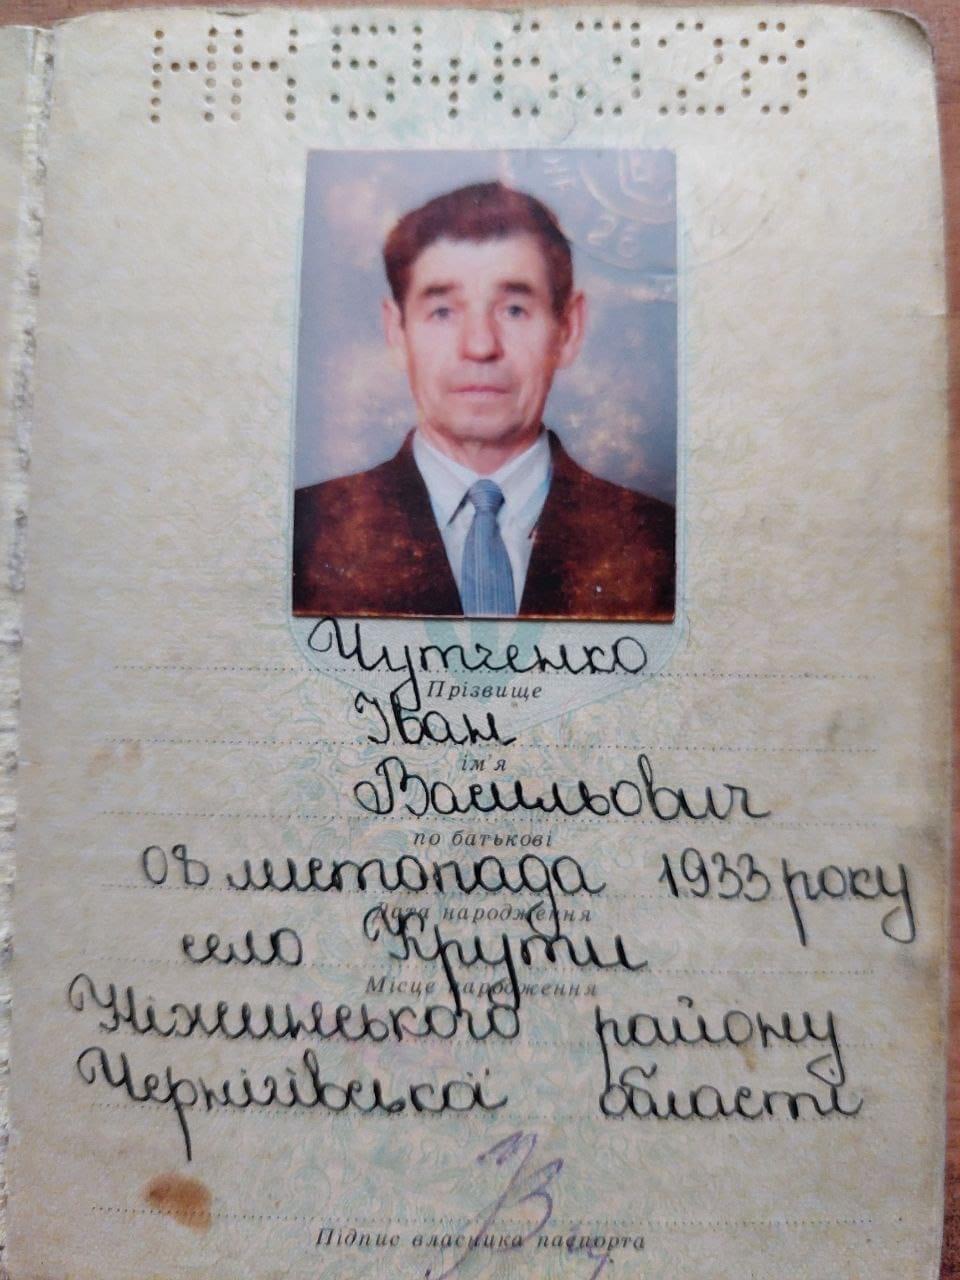 НК 546328
Чутченко
Прізвище
Іван
ім'я
Васильович
по батькові
08 листопада 1933 року
Дата народження
село Крути
Місце народження
Ніжинського району
Чернігівської області
Підпис власника паспорта